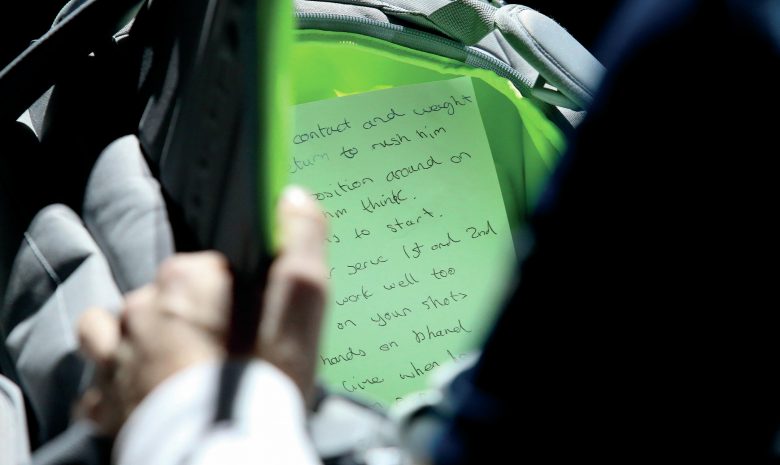 contact and weight
turn to rush him
position around on
him think.
to start.
serve 1st and 2nd
work well too
on your shots
hands on bhand
time when